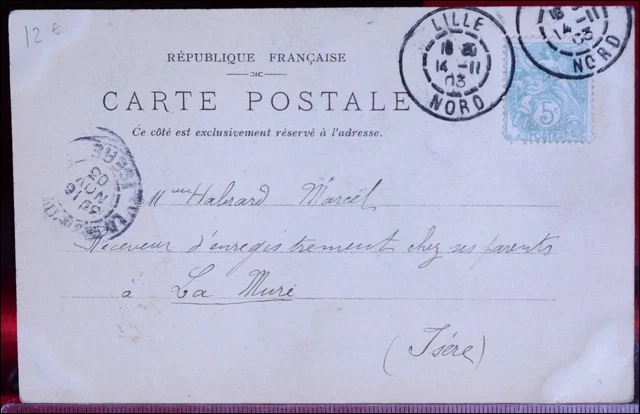 12 €
LILLE
14 -11
03
NORD
14 -11
03
NORD
5
RÉPUBLIQUE FRANÇAISE
CARTE POSTALE
Ce côté est exclusivement réservé à l'adresse.
ISÈRE
16
NOV
03
Marcel
Receveur d'enregistrement chez ses parents
à La Mure
(Isère)